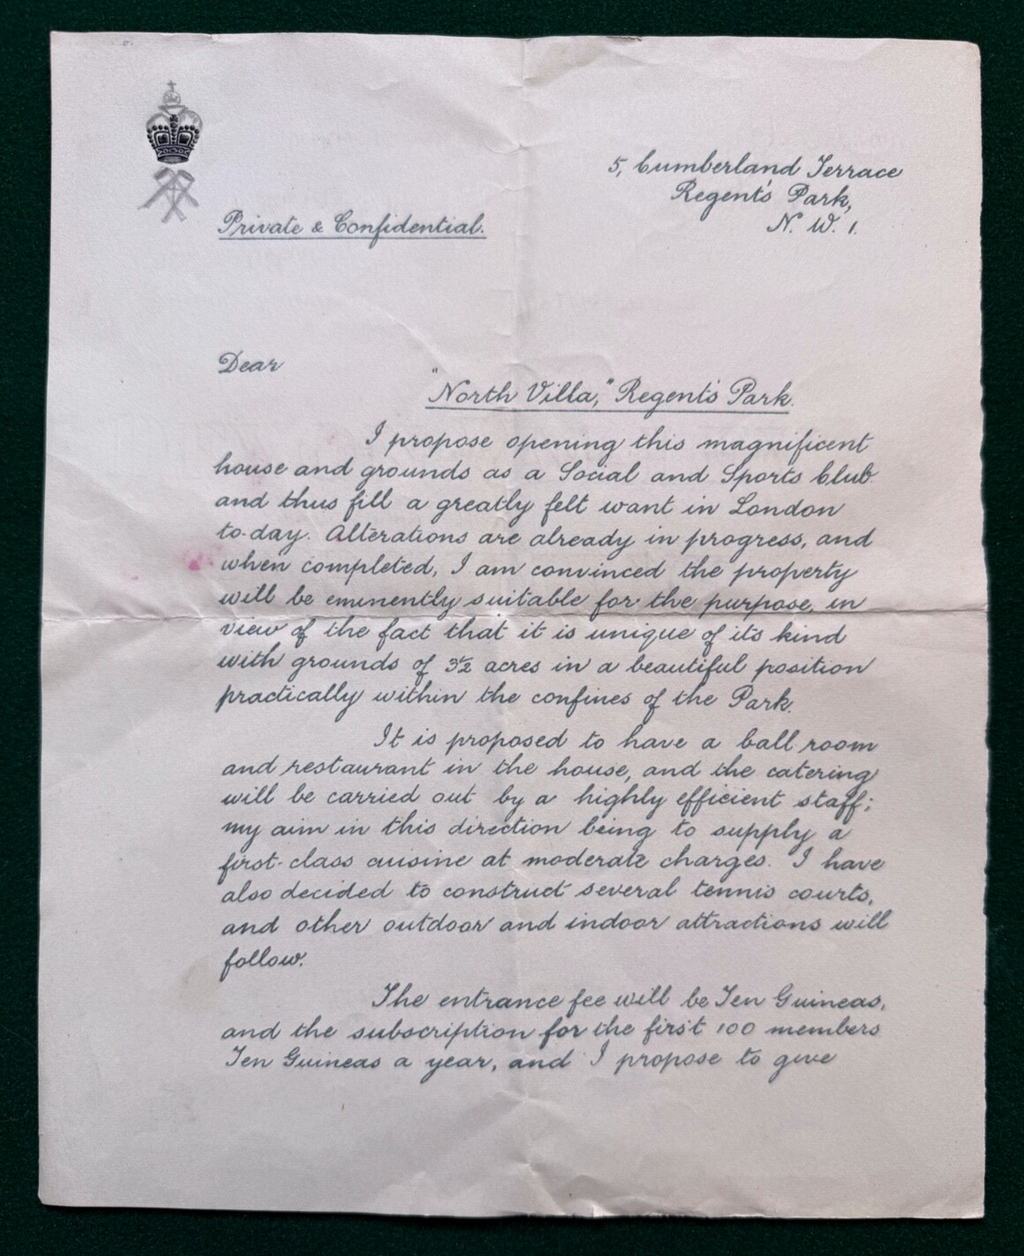 5, Cumberland Terrace
Regent's Park,
N. W. 1.
Private & Confidential.
Dear
"North Villa," Regent's Park.
I propose opening this magnificent
house and grounds as a Social and Sports Club
and thus fill a greatly felt want in London
to-day. Alterations are already in progress, and
when completed, I am convinced the property
will be eminently suitable for the purpose, in
view of the fact that it is unique of its kind
with grounds of 3½ acres in a beautiful position
practically within the confines of the Park.
It is proposed to have a ball room
and restaurant in the house, and the catering
will be carried out by a highly efficient staff;
my aim in this direction being to supply a
first-class cuisine at moderate charges. I have
also decided to construct several tennis courts,
and other outdoor and indoor attractions will
follow.
The entrance fee will be Ten Guineas,
and the subscription for the first 100 members
Ten Guineas a year, and I propose to give